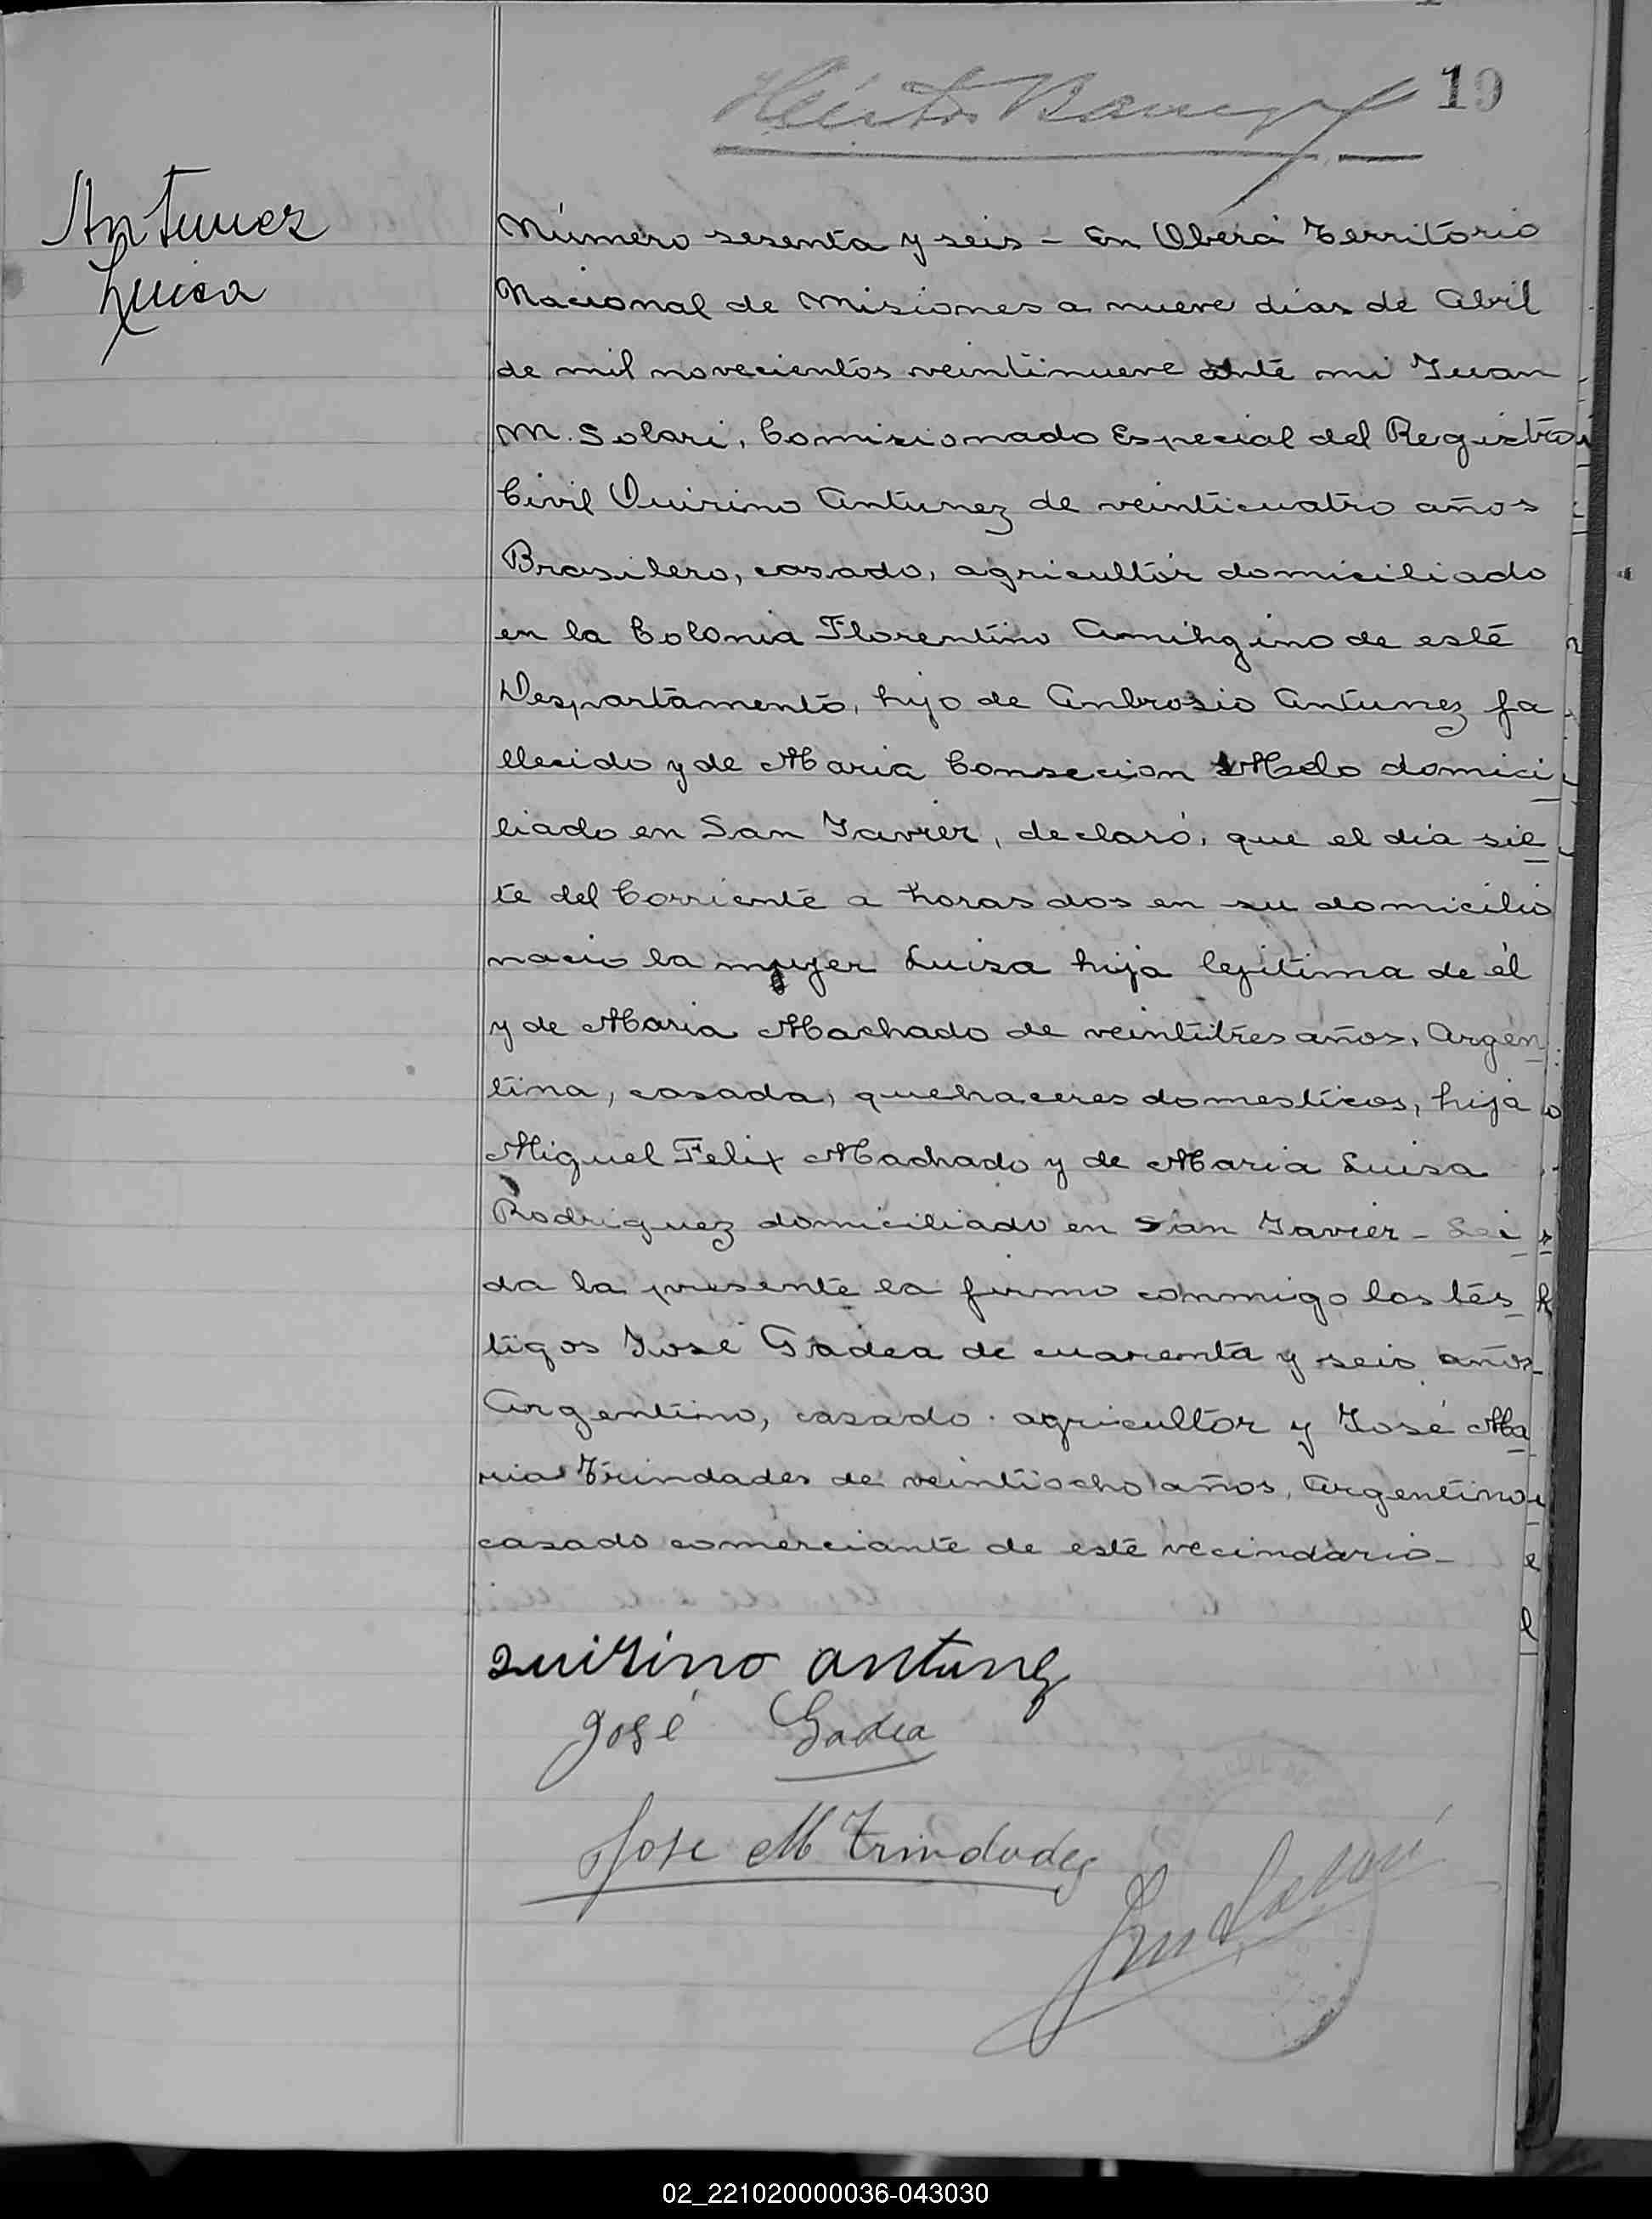 19
Antunez
Luisa
Número sesenta y seis - En Oberá Territorio
Nacional de Misiones a nueve dias de Abril
de mil novecientos veintinueve ante mi Juan
M. Solari, Comisionado Especial del Registro
Civil Quirino Antunez de veinticuatro años
Brasilero, casado, agricultór domiciliado
en la Colonia Florentino Amihgino de esté
Despartamento, hijo de Ambrosio Antunez fa
llecido y de Maria Consecion Melo domici
liado en San Javier, declaró, que el dia sie
te del Corriente a horas dos en su domicilio
nacio la mujer Luisa hija legitima de él
y de Maria Machado de veintitres años, Argen
tina, casada, quehaceres domesticos, hija
Miguel Felix Machado y de Maria Luisa
Rodriguez domiciliado en San Javier - Lei
da la presente la firmo commigo los tes
tigos José Gadea de cuarenta y seis años
Argentino, casado. agricultor y José Ma
ria Trindades de veintiocho años, Argentino
casado comerciante de esté vecindario-
Quirino antunez
José Gadea
Jose M Trindades
02_221020000036-043030